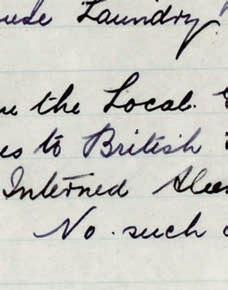 Laundry
the Local
to British
Interned
No such